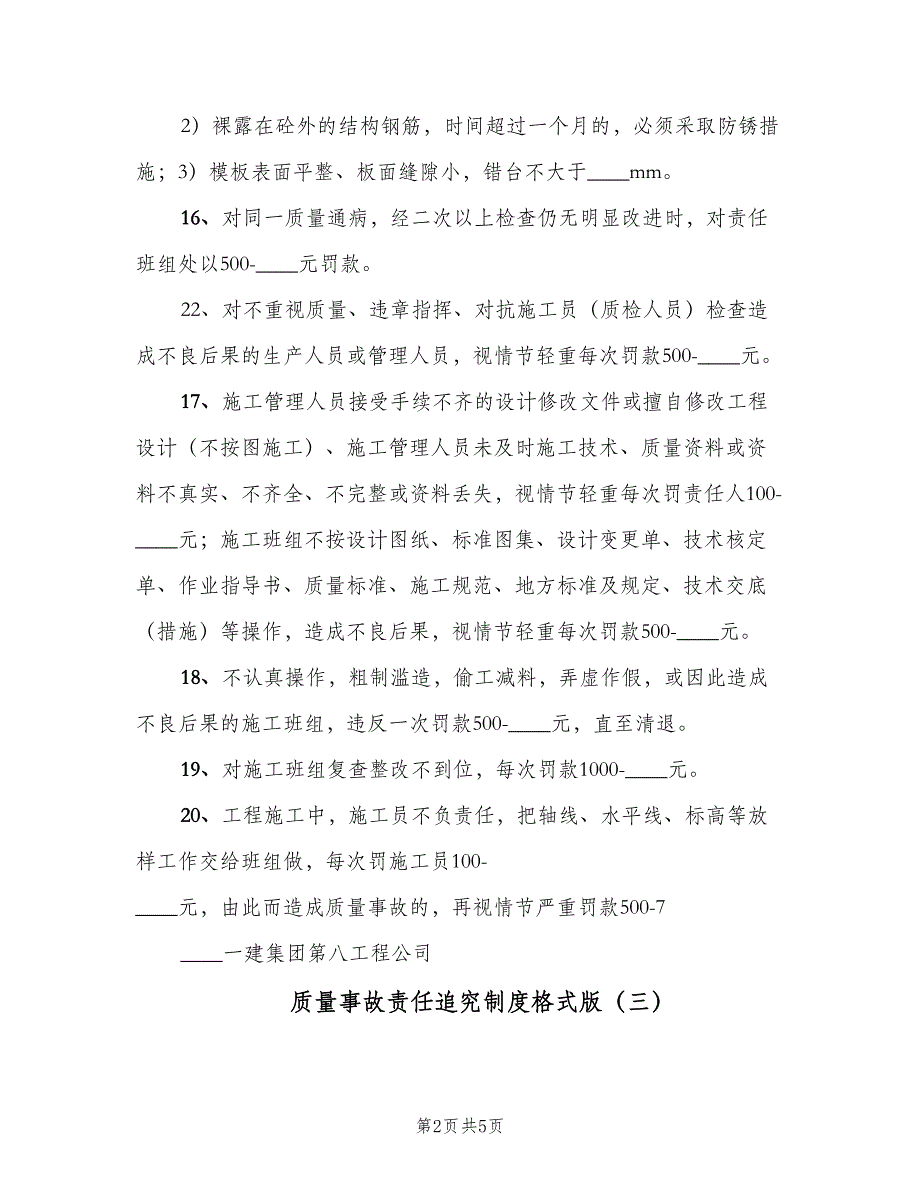 2）裸露在砼外的结构钢筋，时间超过一个月的，必须采取防锈措
施；3）模板表面平整、板面缝隙小，错台不大于____mm。
16、对同一质量通病，经二次以上检查仍无明显改进时，对责任
班组处以500-____元罚款。
22、对不重视质量、违章指挥、对抗施工员（质检人员）检查造
成不良后果的生产人员或管理人员，视情节轻重每次罚款500-____元。
17、施工管理人员接受手续不齐的设计修改文件或擅自修改工程
设计（不按图施工）、施工管理人员未及时施工技术、质量资料或资
料不真实、不齐全、不完整或资料丢失，视情节轻重每次罚责任人100-
____元；施工班组不按设计图纸、标准图集、设计变更单、技术核定
单、作业指导书、质量标准、施工规范、地方标准及规定、技术交底
（措施）等操作，造成不良后果，视情节轻重每次罚款500-____元。
18、不认真操作，粗制滥造，偷工减料，弄虚作假，或因此造成
不良后果的施工班组，违反一次罚款500-____元，直至清退。
19、对施工班组复查整改不到位，每次罚款1000-____元。
20、工程施工中，施工员不负责任，把轴线、水平线、标高等放
样工作交给班组做，每次罚施工员100-
____元，由此而造成质量事故的，再视情节严重罚款500-7
____一建集团第八工程公司
质量事故责任追究制度格式版（三）
第2页 共5页